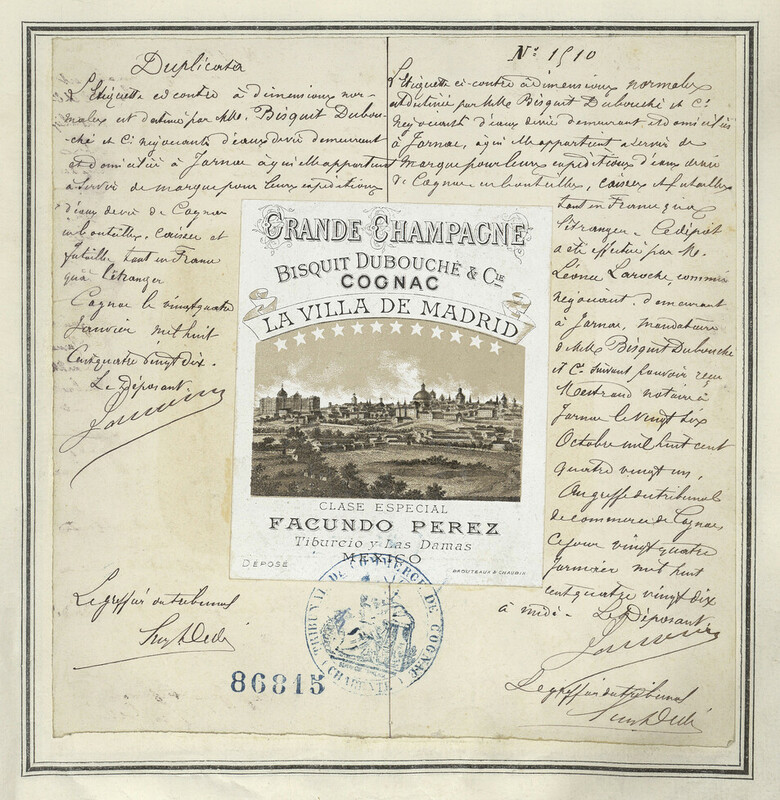 Duplicata
L'Etiquette ci contre à dimensions nor-
males est destinée par MM. Bisquit Dubou-
ché et Cie négociants d'eaux de vie demeurant
et domiciliés à Jarnac à qui elle appartient
à servir de marque pour leurs expéditions
d'eaux de vie de Cognac
en bouteilles, caisses et
futailles tant en France
qu'à l'étranger
Cognac le vingt quatre
Janvier mil huit
Cent quatre vingt dix.
Le Déposant
Le greffier du tribunal
86815
No 1510
L'étiquette ci-contre à dimensions normales
est destinée par MM. Bisquit Dubouché et Cie
négociants d'eaux de vie demeurant et domiciliés
à Jarnac, à qui elle appartient à servir de
marque pour leurs expéditions d'eaux de vie
de Cognac en bouteilles, caisses et futailles
tant en France qu'à
l'étranger. Ce dépôt
a été effectué par M.
Léonce Laroche, commis
négociant, demeurant
à Jarnac, mandataire
de MM. Bisquit Dubouché
et Cie suivant pouvoir reçu
notaire à
Jarnac le vingt six
Octobre mil huit cent
quatre vingt un,
Au greffe du tribunal
de commerce de Cognac
ce jour vingt quatre
Janvier mil huit
cent quatre vingt dix
à midi. Le Déposant
Le greffier du tribunal
GRANDE CHAMPAGNE
BISQUIT DUBOUCHÉ & CIE
COGNAC
LA VILLA DE MADRID
CLASE ESPECIAL
FACUNDO PEREZ
Tiburcio y Las Damas
MEXICO
DÉPOSÉ
BROUTEAUX & CHAUBIN
TRIBUNAL DE COMMERCE DE COGNAC
(CHARENTE)